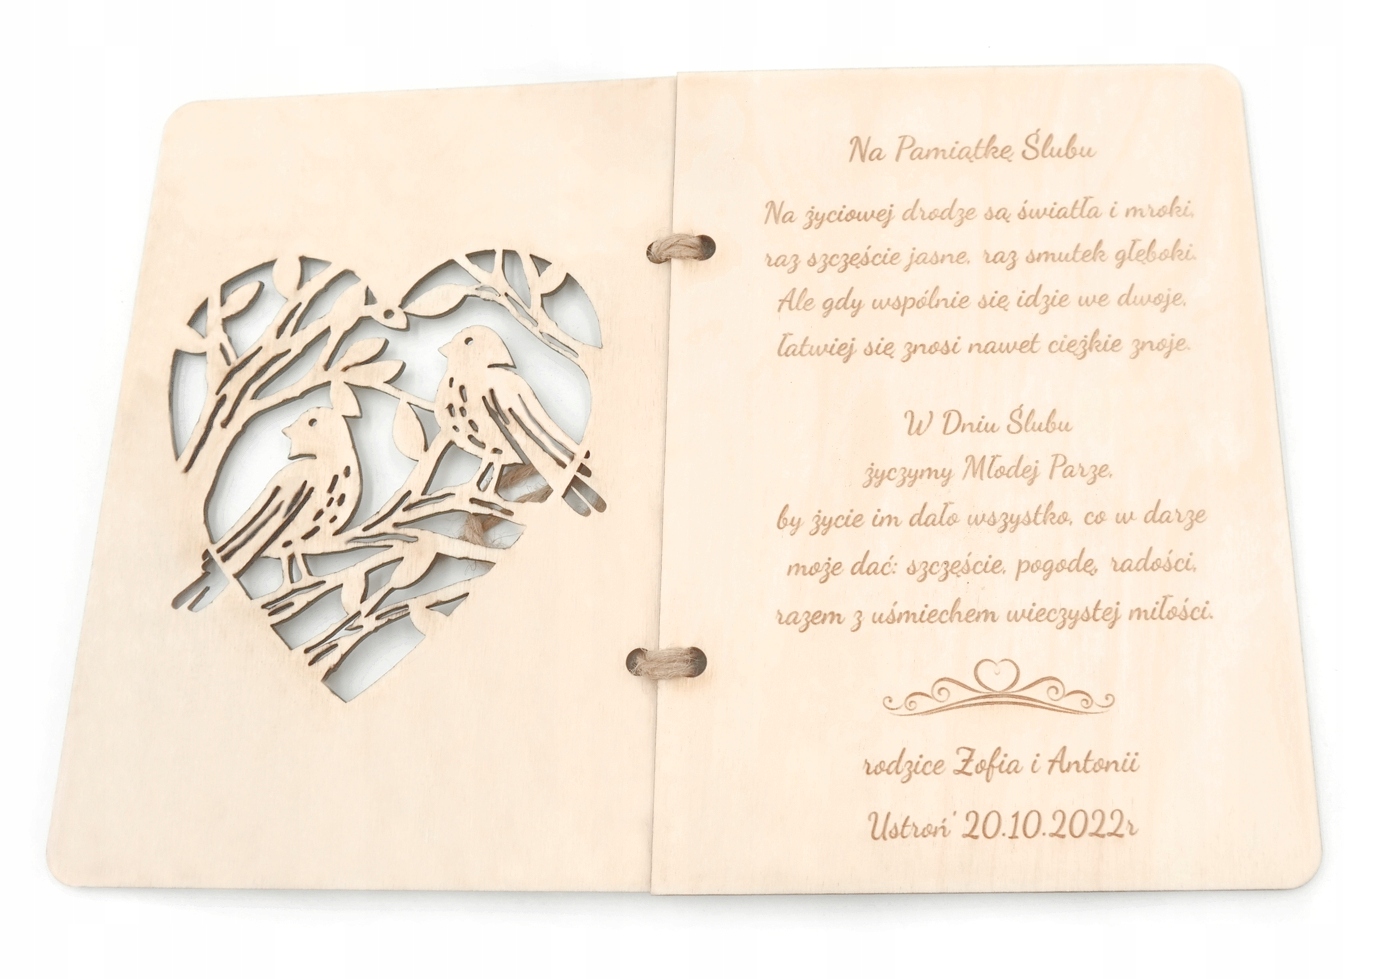 Na Pamiątkę Ślubu
Na życiowej drodze są światła i mroki,
raz szczęście jasne, raz smutek głęboki.
Ale gdy wspólnie się idzie we dwoje,
łatwiej się znosi nawet ciężkie znoje.
W Dniu Ślubu
życzymy Młodej Parze,
by życie im dało wszystko, co w darze
może dać: szczęście, pogodę, radości,
razem z uśmiechem wieczystej miłości.
rodzice Zofia i Antonii
Ustroń' 20.10.2022r